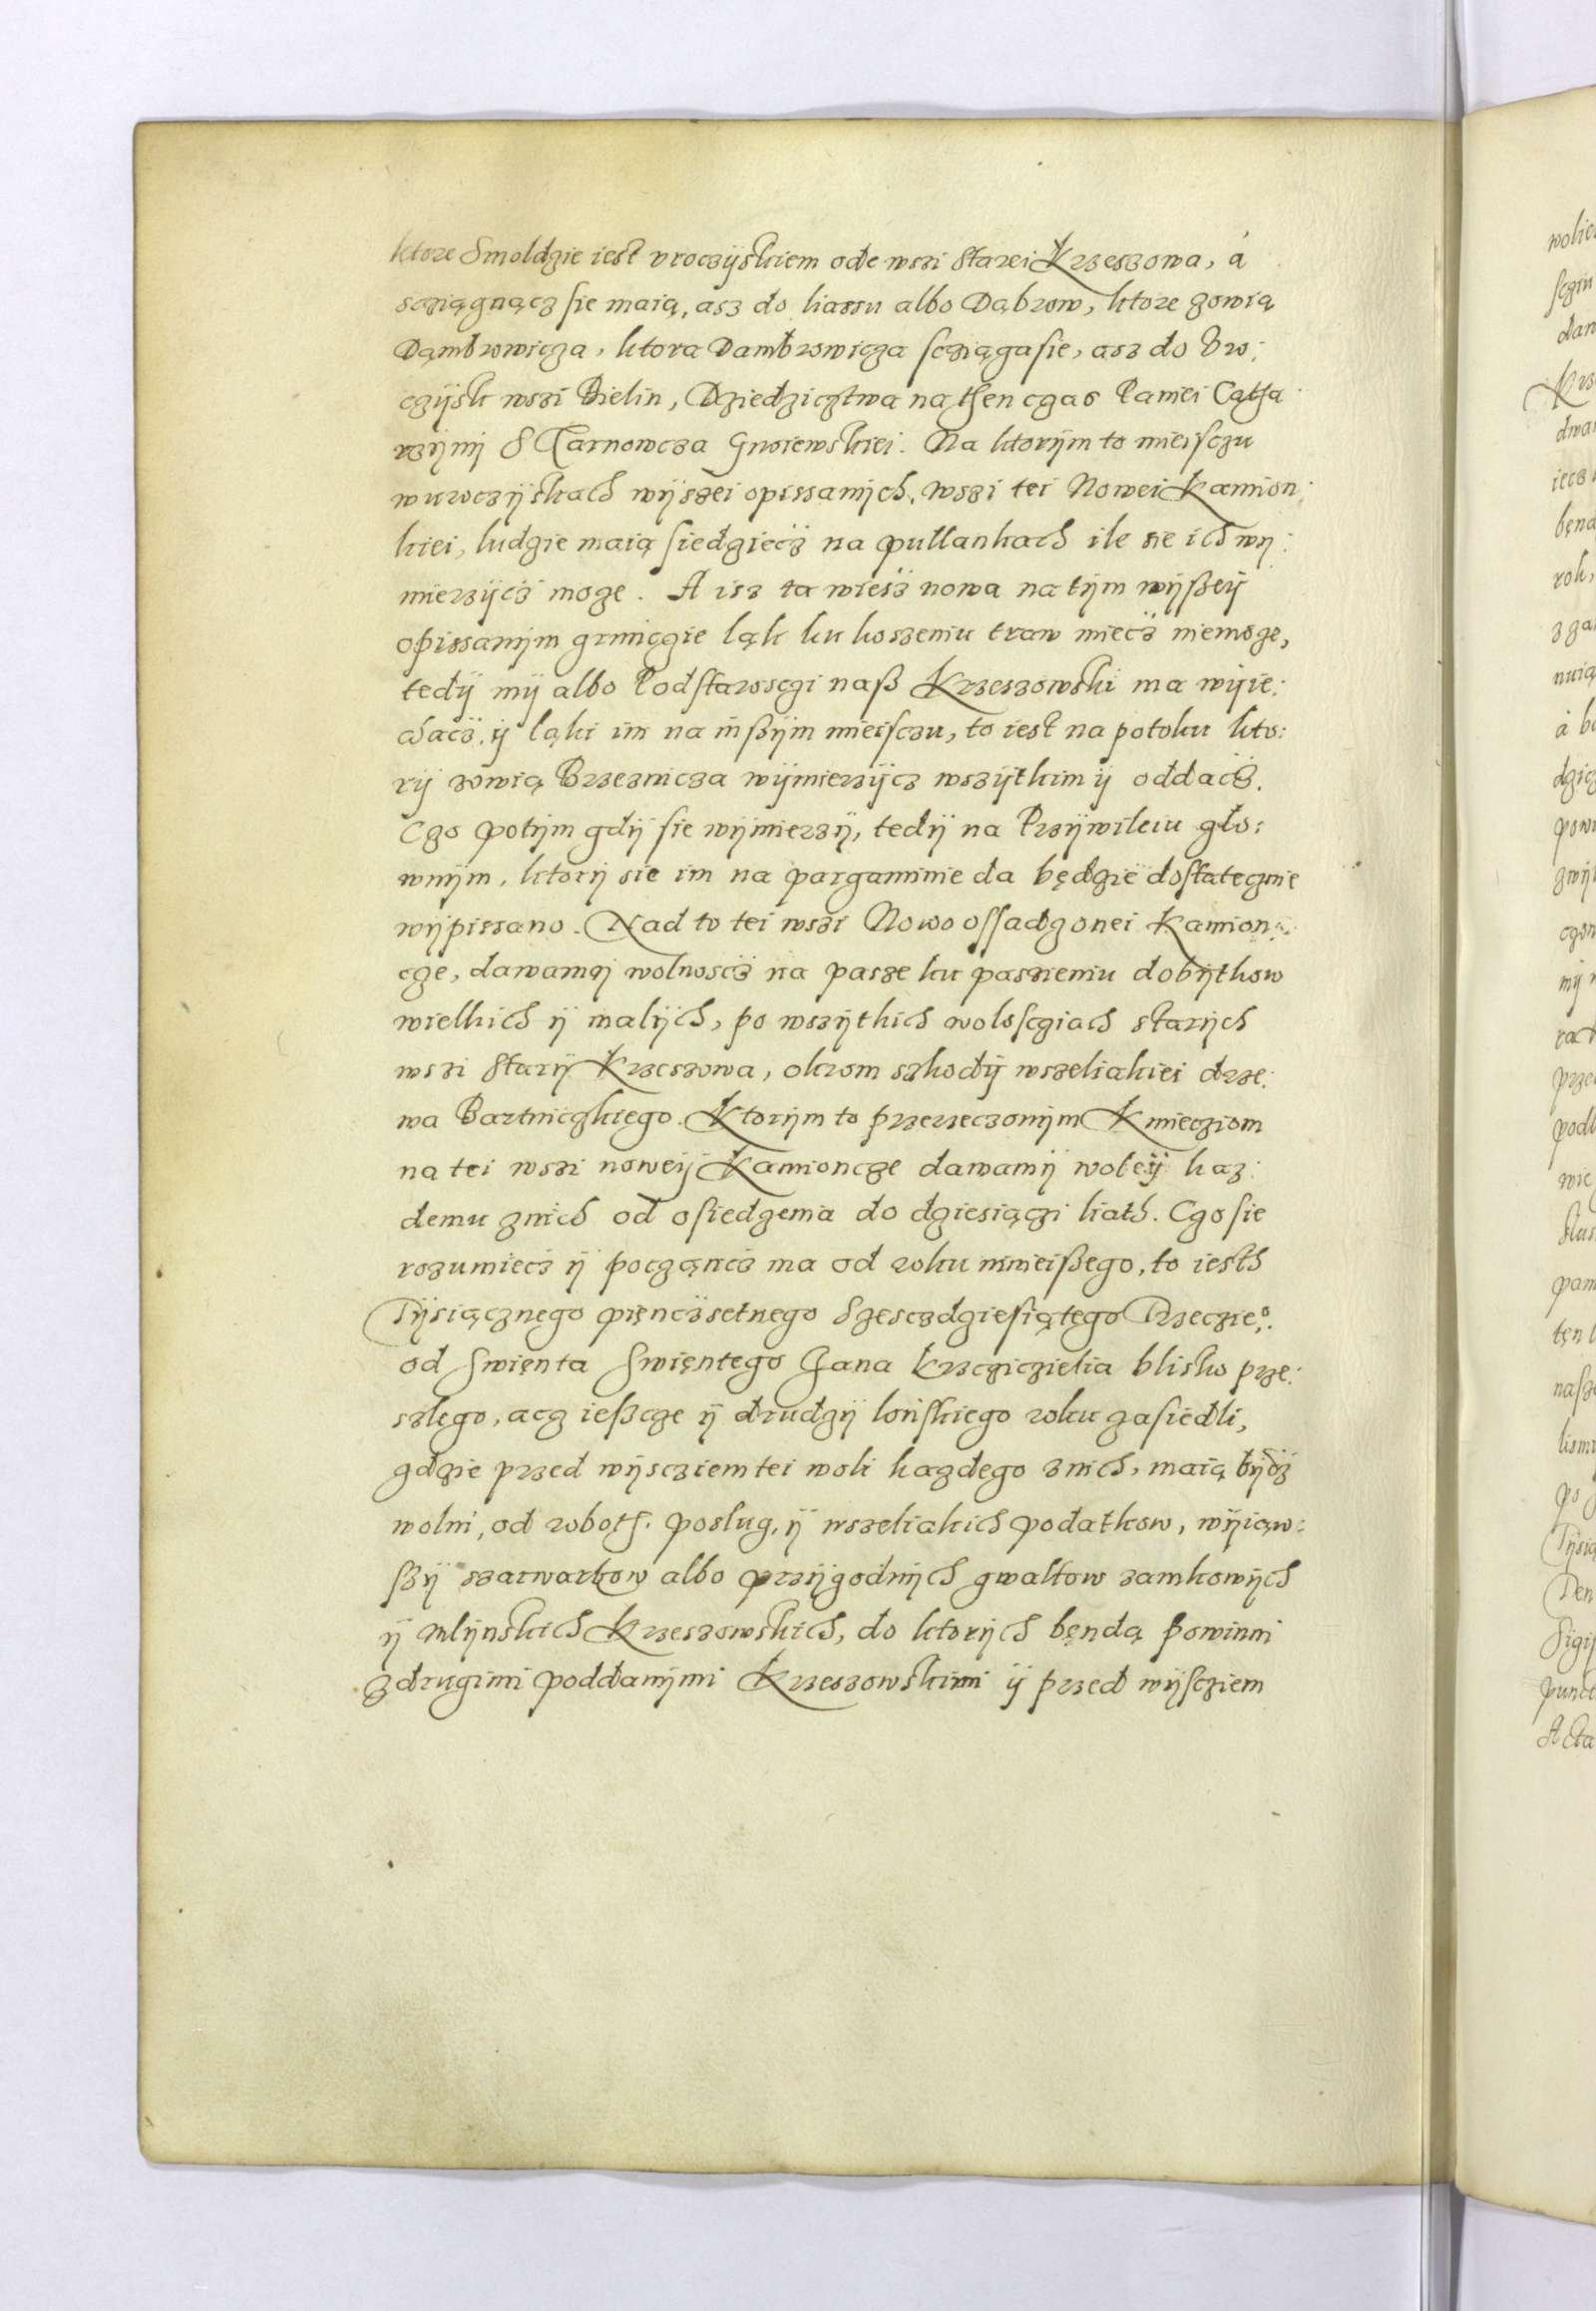 ktore Smoldzie iest vroczÿskiem ode wszi Starei Krzeszowa, á
scziągnącz sie maią, asz do liassu albo Dąbrow, ktore zowią
Dąmbrowicza, ktora Dambrowicza scziąga sie, asz do Vro:
czÿsk wszi Bielin, Dziedzicztwa na then czas Paniei Catha:
rzÿnÿ S Tarnowcza Gnoiewskiei. Na ktorÿm to mieisczu
w uroczÿskach wÿszei opissanÿch. wszi tei Nowei Kamion:
kiei, ludzie maią siedziecz na pullankach ile sie ich wÿ:
mierzÿcz moze. A isz ta wiesz nowa na tÿm wÿßeÿ
opissanÿm grunczie ląk ku koszeniu traw miecz niemoze,
tedÿ mÿ albo Podstarosczi naß Krzeszowski ma wÿie:
chacz, ÿ ląki im na inßÿm mieisczu, to iest na potoku kto:
rÿ zowią Brzeznicza wÿmierzÿcz wszÿtkim ÿ oddacz.
Czo potÿm gdÿ sie wÿmierzÿ, tedÿ na Przÿwileiu glo:
wnÿm, ktorÿ sie im na pargaminie da będzie dostatecznie
wÿpissano. Nad to tei wszi Nowo ossadzonei Kamion:
cze, dawamÿ wolnoscz na pasze ku paszieniu dobÿtkow
wielkich ÿ malÿch, po wszÿtkich wolosciach starÿch
wszi Starÿ Krzeszowa, okrom szkodÿ wszeliakiei drze:
wa Bartniczkiego. Ktorÿm to przerzeczonÿm Kmiecziom
na tei wszi noweÿ Kamioncze dawamÿ woleÿ kaz:
demu znich od osiedzenia do dziesiączi liath. Czo sie
rozumiecz ÿ poczęncz ma od roku ninieißego, to iesth
Tÿsiącznego pięnczsetnego Szesczdziesiątego Trzeczie°.
od Swięnta Swięntego Jana Krzcziczielia blisko prze:
szlego, acz ießcze ÿ drudzÿ lonskiego roku zasiedli,
gdzie przed wÿscziem tei woli kazdego znich, maią bÿdz
wolni, od roboth. poslug, ÿ wszeliakich podatkow, wÿiąw:
szÿ szarwarkow albo przÿgodnÿch gwaltow zamkowÿch
ÿ mlÿnskich Krzeszowskich, do ktorÿch bęndą powinni
zdrugimi poddanÿmi Krzeszowskimi ÿ przed wÿscziem